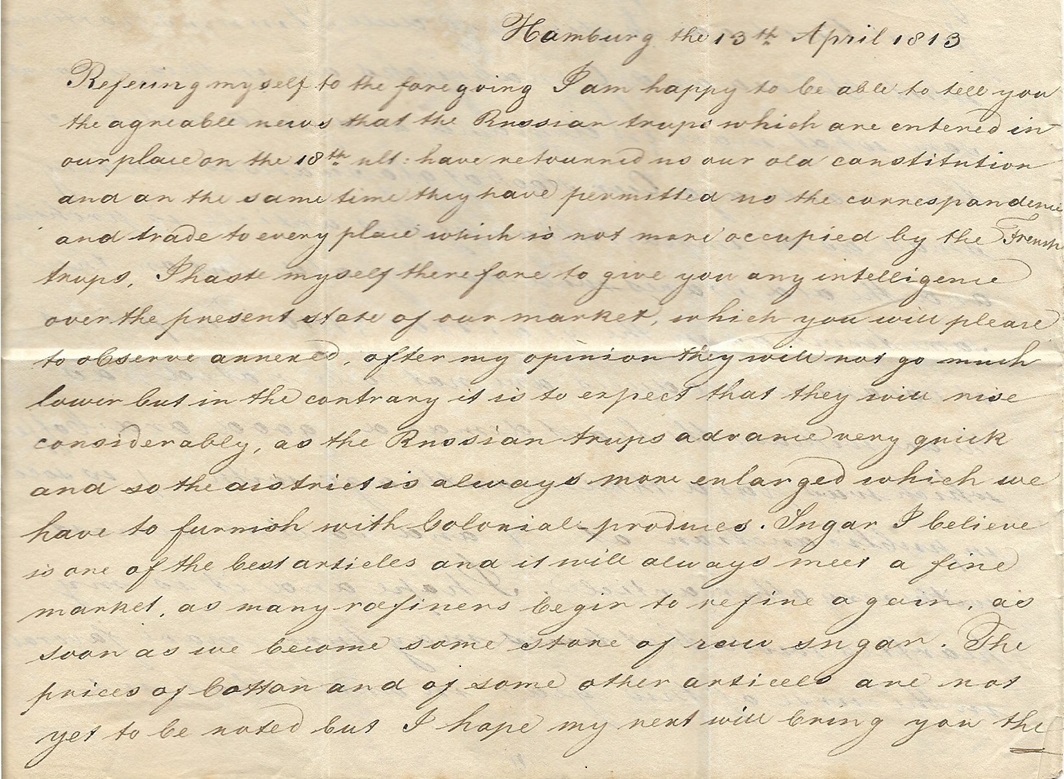 Hamburg the 13th April 1813
Refering myself to the foregoing I am happy to be able to tell you
the agreable news that the Russian trups which are entered in
our place on the 18th ult: have retourned us our old constitution
and on the same time they have permitted us the correspondence
and trade to every place which is not more occupied by the French
trups. I haste myself therefore to give you any intelligence
over the present state of our market, which you will please
to observe annexed, after my opinion they will not go much
lower but in the contrary it is to expect that they will rise
considerably, as the Russian trups advance very quick
and so the district is always more enlarged which we
have to furnish with Colonial-produces. Sugar I believe
is one of the best articles and it will always meet a fine
market, as many rafiners begin to refine again, as
soon as we become some store of raw sugar. The
prices of Cotton and of some other articels are not
yet to be noted but I hope my next will bring you the